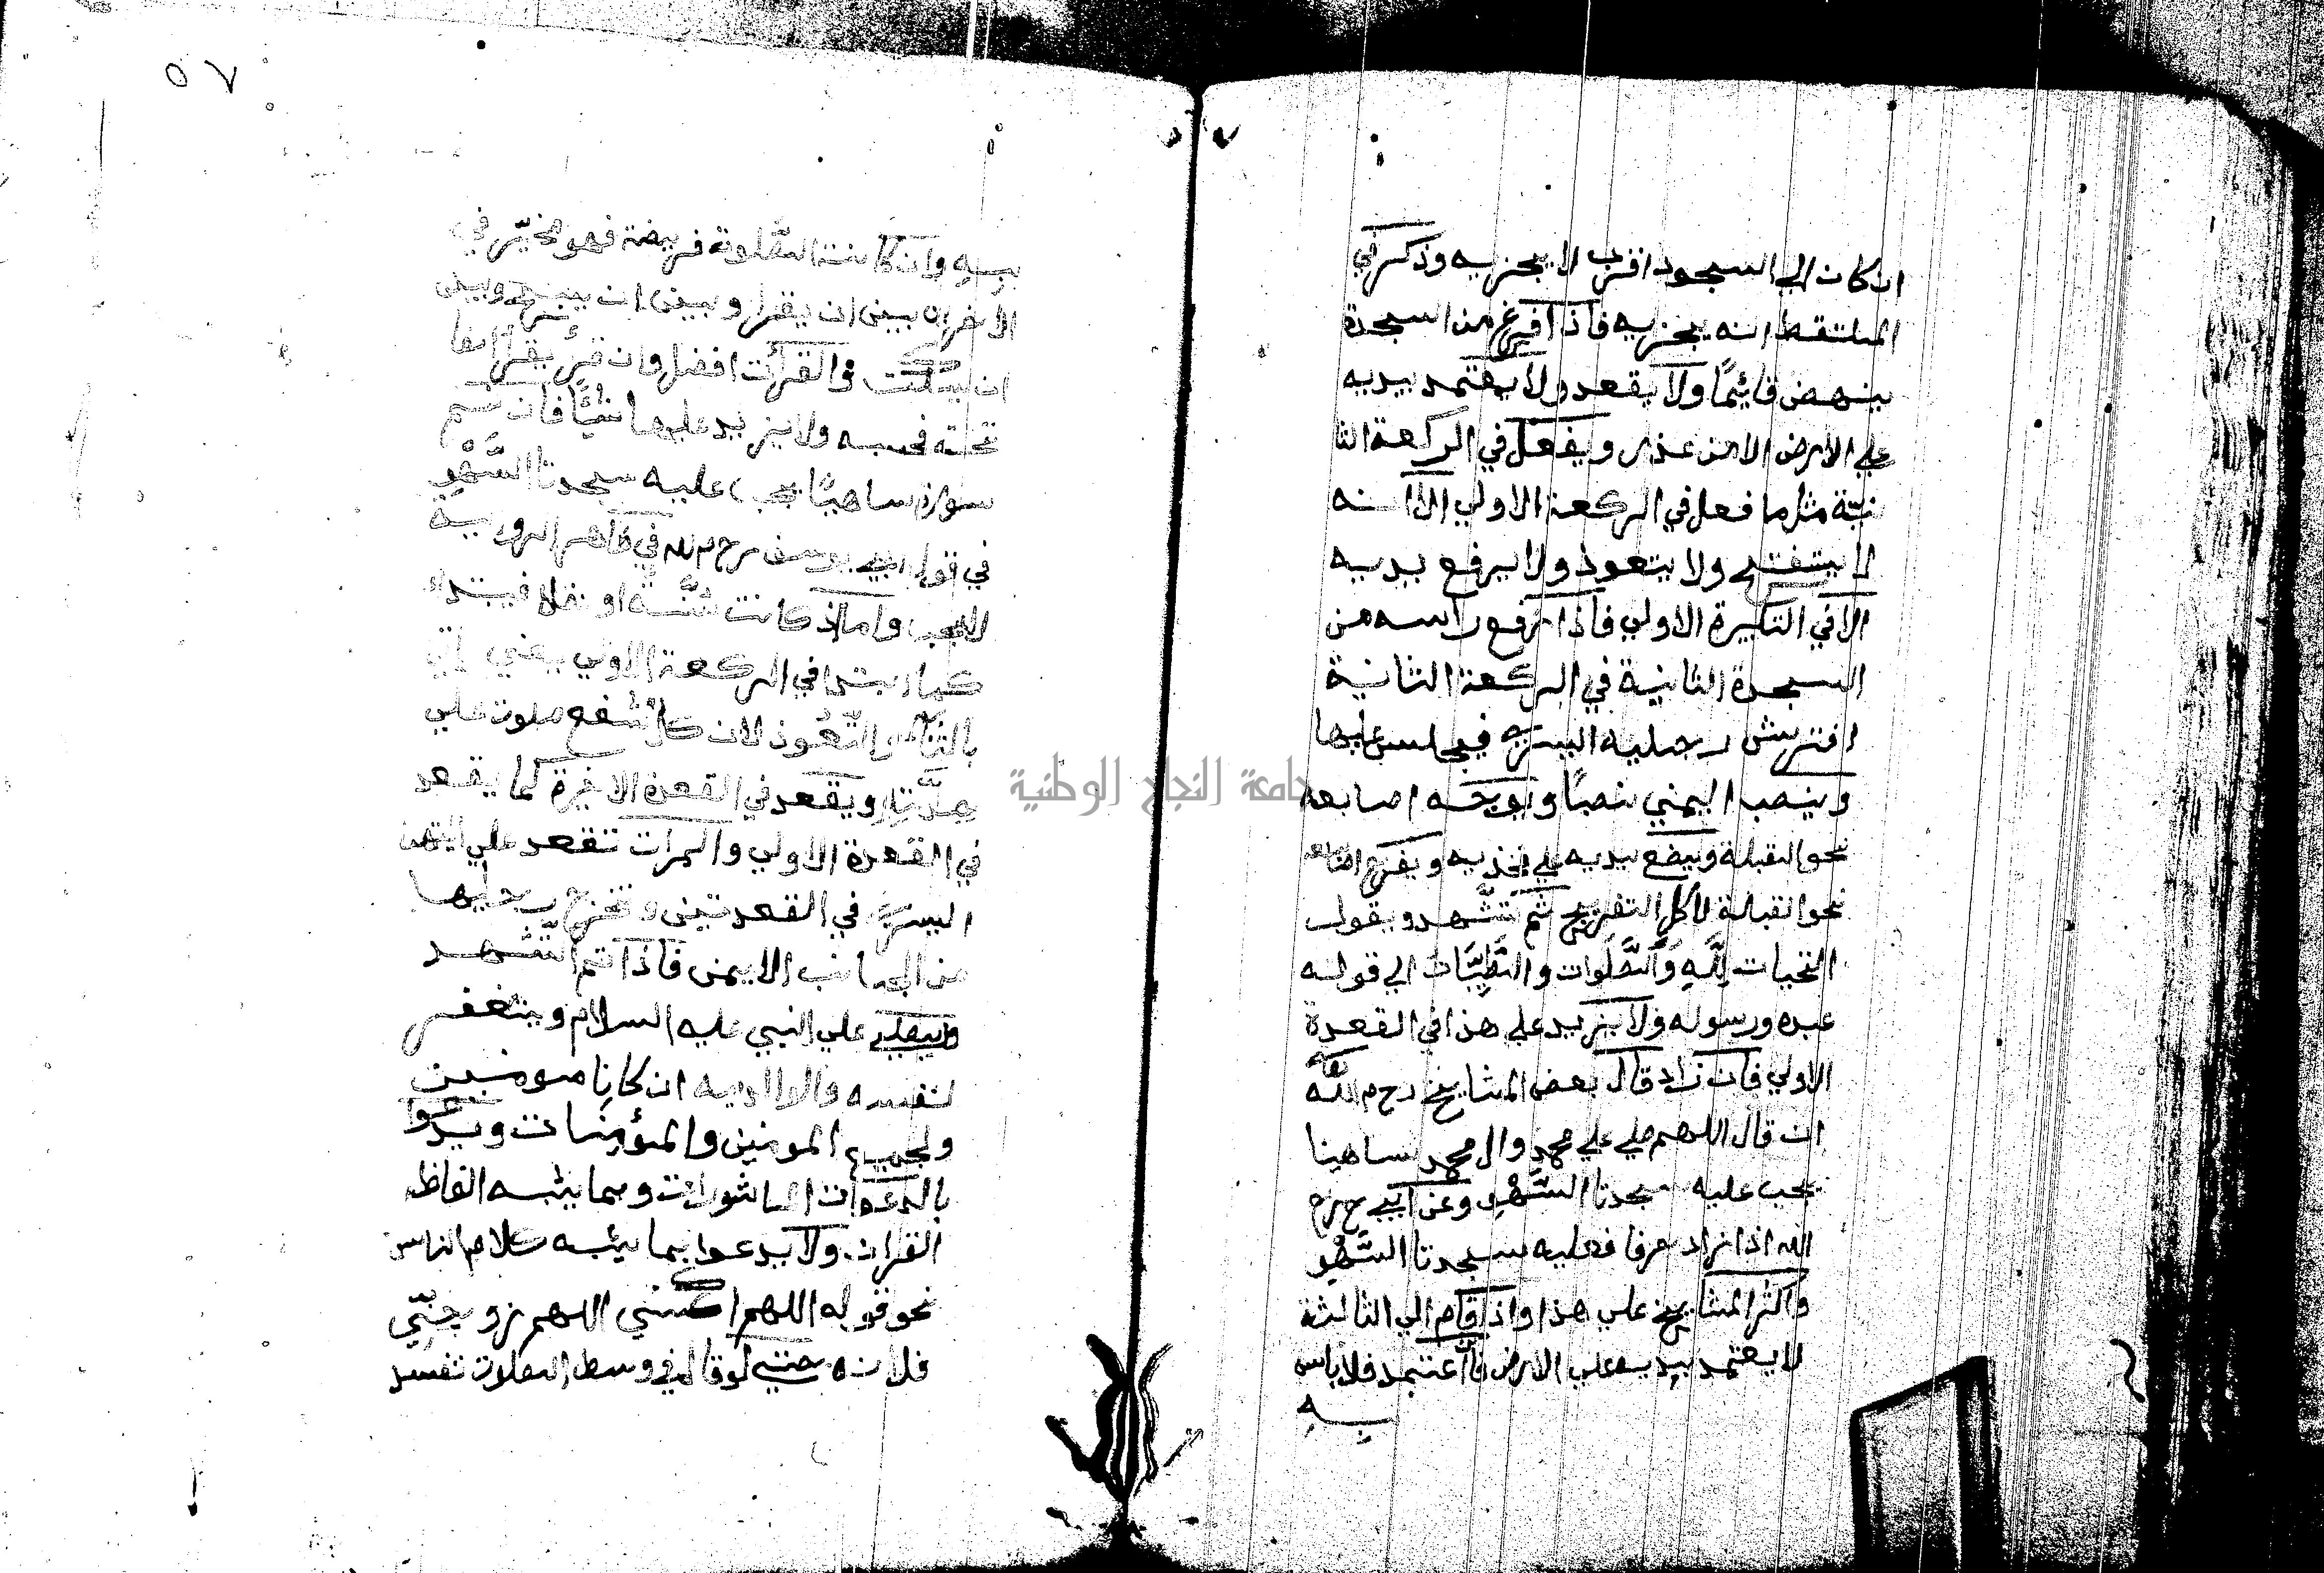 ان كان الي السجود اقرب لا يجزيه وذكر في
الملتقط انه يجزيه فاذا فرغ من السجدة
ينهض قائيمًا ولا يقعد ولا يعتمد بيديه
علي الارض الا من عذر ويفعل في الركعة الثا
نيّة مثل ما فعل في الركعة الاولي الا انه
لا يستفتح ولا يتعوذ ولا يرفع يديه
الا في التكبيرة الاولي فاذا رفع راسه من
السجدة الثانية في الركعة الثانية
افترش رجليه اليسري فيجلس عليها
وينصب اليمني نصبًا ويوجه اصابعه
نحو القبلة ويضع يديه علي فخذيه ويفرج اصابعه
نحو القبلة لا كل التفريج ثم تشهد ويقول
التحيات لِلّهِ وَالصَّلَوات والطَّيِّبَات الي قوله
عبده ورسوله ولا يزيد علي هذا في القعدة
الاولي فان زاد قال بعض المشايخ رحمه الله
ان قال اللهم صلي علي محمد وال محمد ساهيا
يجب عليه سجدتا السَّهْوِ وعن ابي ح رح
الله اذا زاد حرفا فعليه سجدتا السَّهْوِ
واكثر المشايخ علي هذا واذا قام الي الثالثة
لا يعتمد بيديه علي الارض فان اعتمد فلا باس
بِــهِ
٥٧
بِهِ وان كانت الصَّلوة فريضة فهو مخيّر في
الاخران بين ان يقرا وبين ان يسبح وبين
ان يسكت والقرأت افضل وان قرئ يقرأ الفا
تحته فحسبه ولا يزيد عليها شيًا فان ضم
سورة ساهيًا يجب عليه سجدتا السَّهْوِ
في قول ابي يوسف رحمه الله في ظاهر الروايه
لا يجب واما اذ كانت سُنَّـة او نفلا فيبتداء
كما ابتدا في الركعة الاولي يعني اتي
بالثَّنَاء والتّعُوذ لان كل شفع صلوت علي
حِدَّتِهِ ويقعد في القعدة الاخيرة كما يقعد
في القعدة الاولي والمرات تقعد علي
اليسري في القعدتين وتخرج رجليها
من الجانب الايمن فاذا تم التّشهد
ويصلي علي النبي عليه السلام ويستغفر
لنفسه والابويه ان كانا مومنين
ولجميع المومنين والمؤمِنات ويدعوا
بالدعوات الماثورات وبما يشبه الفاظ
القران ولا يدعوا بما يشبه كلام الناس
نحو قوله اللهم اكسني اللهم زوجنِّي
فلانه حتي لو قال في وسط الصلات تفسد